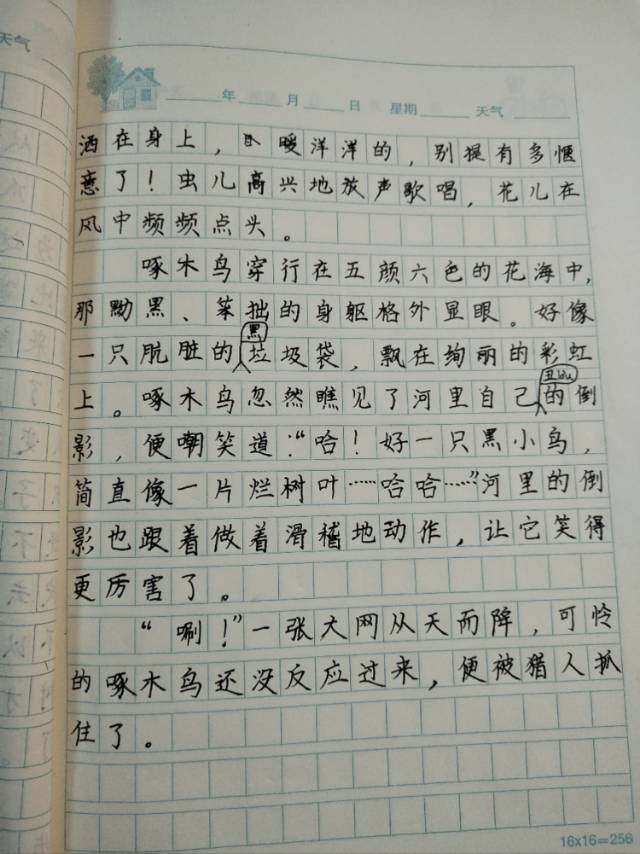 天气
年 月 日 星期 天气
洒在身上，暖洋洋的，别提有多惬
意了！虫儿高兴地放声歌唱，花儿在
风中频频点头。
啄木鸟穿行在五颜六色的花海中，
那黝黑、笨拙的身躯格外显眼。好像
一只肮脏的黑垃圾袋，飘在绚丽的彩虹
上。啄木鸟忽然瞧见了河里自己的倒
影，便嘲笑道：“哈！好一只黑小鸟，
简直像一片烂树叶……哈哈……”河里的倒
影也跟着做着滑稽地动作，让它笑得
更厉害了。
“唰！”一张大网从天而降，可怜
的啄木鸟还没反应过来，便被猎人抓
住了。
16x16=256